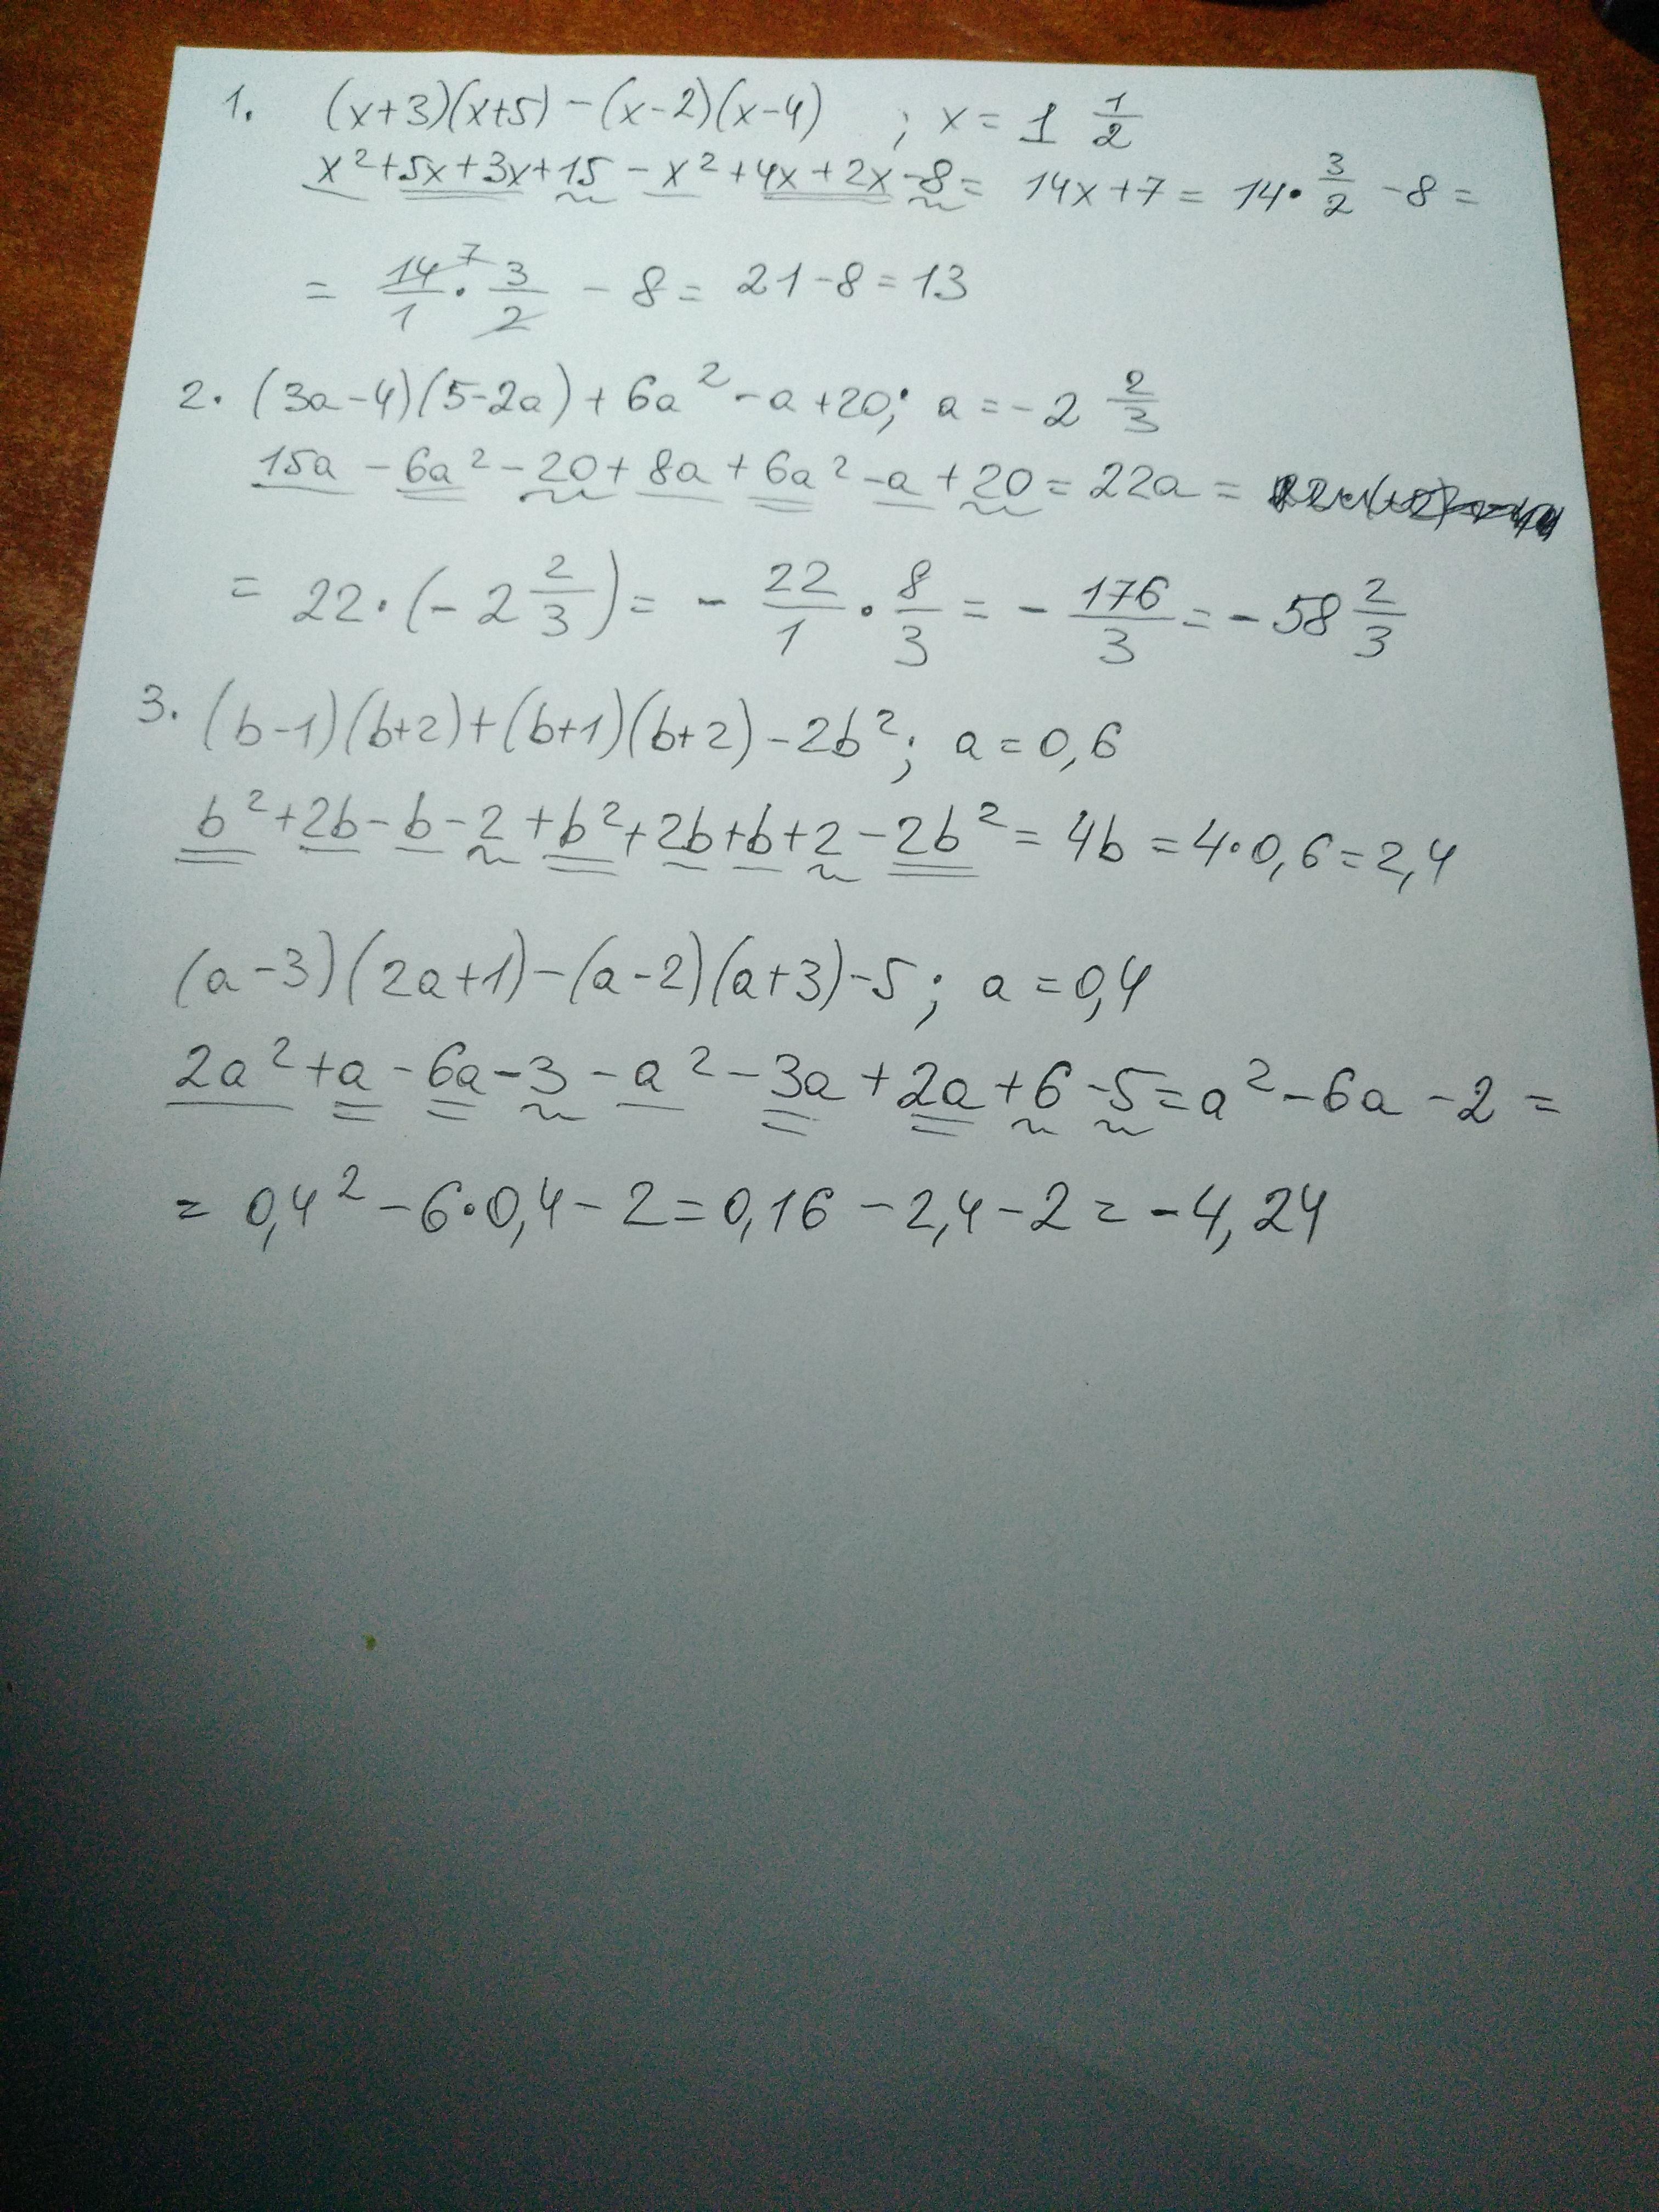 1. (x+3)(x+5)-(x-2)(x-4) ; x = 1 1/2
x²+5x+3x+15-x²+4x+2x-8= 14x+7= 14·3/2 -8=
= 14/1 7 · 3/2 - 8= 21-8=13
2. (3a-4)(5-2a)+6a²-a+20; a=-2 2/3
15a-6a²-20+8a+6a²-a+20=22a=
= 22·(-2 2/3)= - 22/1 · 8/3 = - 176/3 = -58 2/3
3. (b-1)(b+2)+(b+1)(b+2)-2b²; a=0,6
b²+2b-b-2+b²+2b+b+2-2b²=4b=4·0,6=2,4
(a-3)(2a+1)-(a-2)(a+3)-5; a=0,4
2a²+a-6a-3-a²-3a+2a+6-5=a²-6a-2=
= 0,4²-6·0,4-2=0,16-2,4-2=-4,24